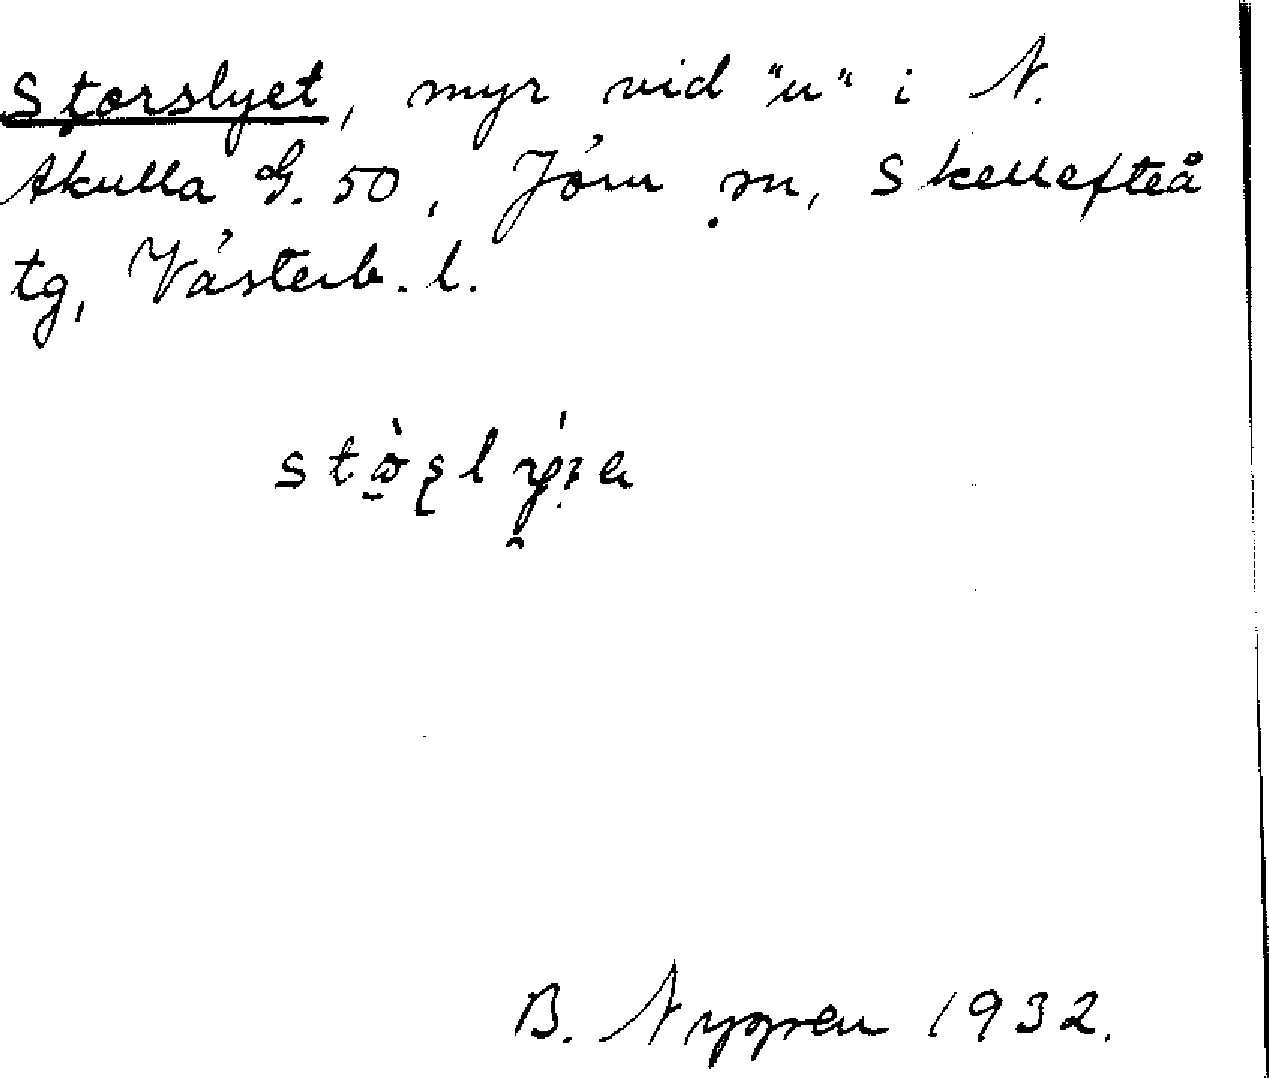 Storslyet, myr vid "u" i N.
Åkulla G. 50, Jörn sn, Skellefteå
tg, Västerb. l.
B. Nygren 1932.